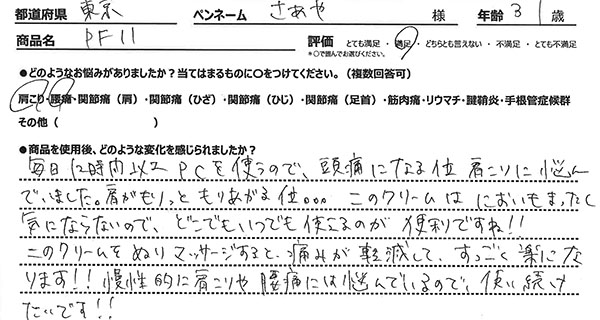 都道府県 東京 ペンネーム さあや 様 年齢 31 歳
商品名 PF11 評価 とても満足・満足・どちらとも言えない・不満足・とても不満足
*○で囲んでお選びください。
●どのようなお悩みがありましたか?当てはまるものに○をつけてください。(複数回答可)
肩こり・腰痛・関節痛(肩)・関節痛(ひざ)・関節痛(ひじ)・関節痛(足首)・筋肉痛・リウマチ・腱鞘炎・手根管症候群
その他( )
●商品を使用後、どのような変化を感じられましたか?
毎日12時間以上PCを使うので、頭痛になる位肩こりに悩ん
でいました。肩がもりっともりあがる位。。。このクリームはにおいもまったく
気にならないので、どこでもいつでも使えるのが便利ですね!!
このクリームをぬりマッサージすると、痛みが軽減して、すっごく楽にな
ります!!慢性的に肩こりや腰痛には悩んでいるので、使い続け
たいです!!